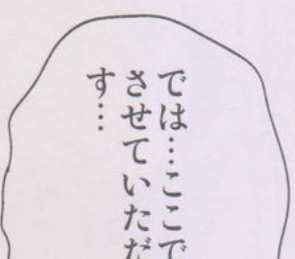 では…ここで
させていただ
す…